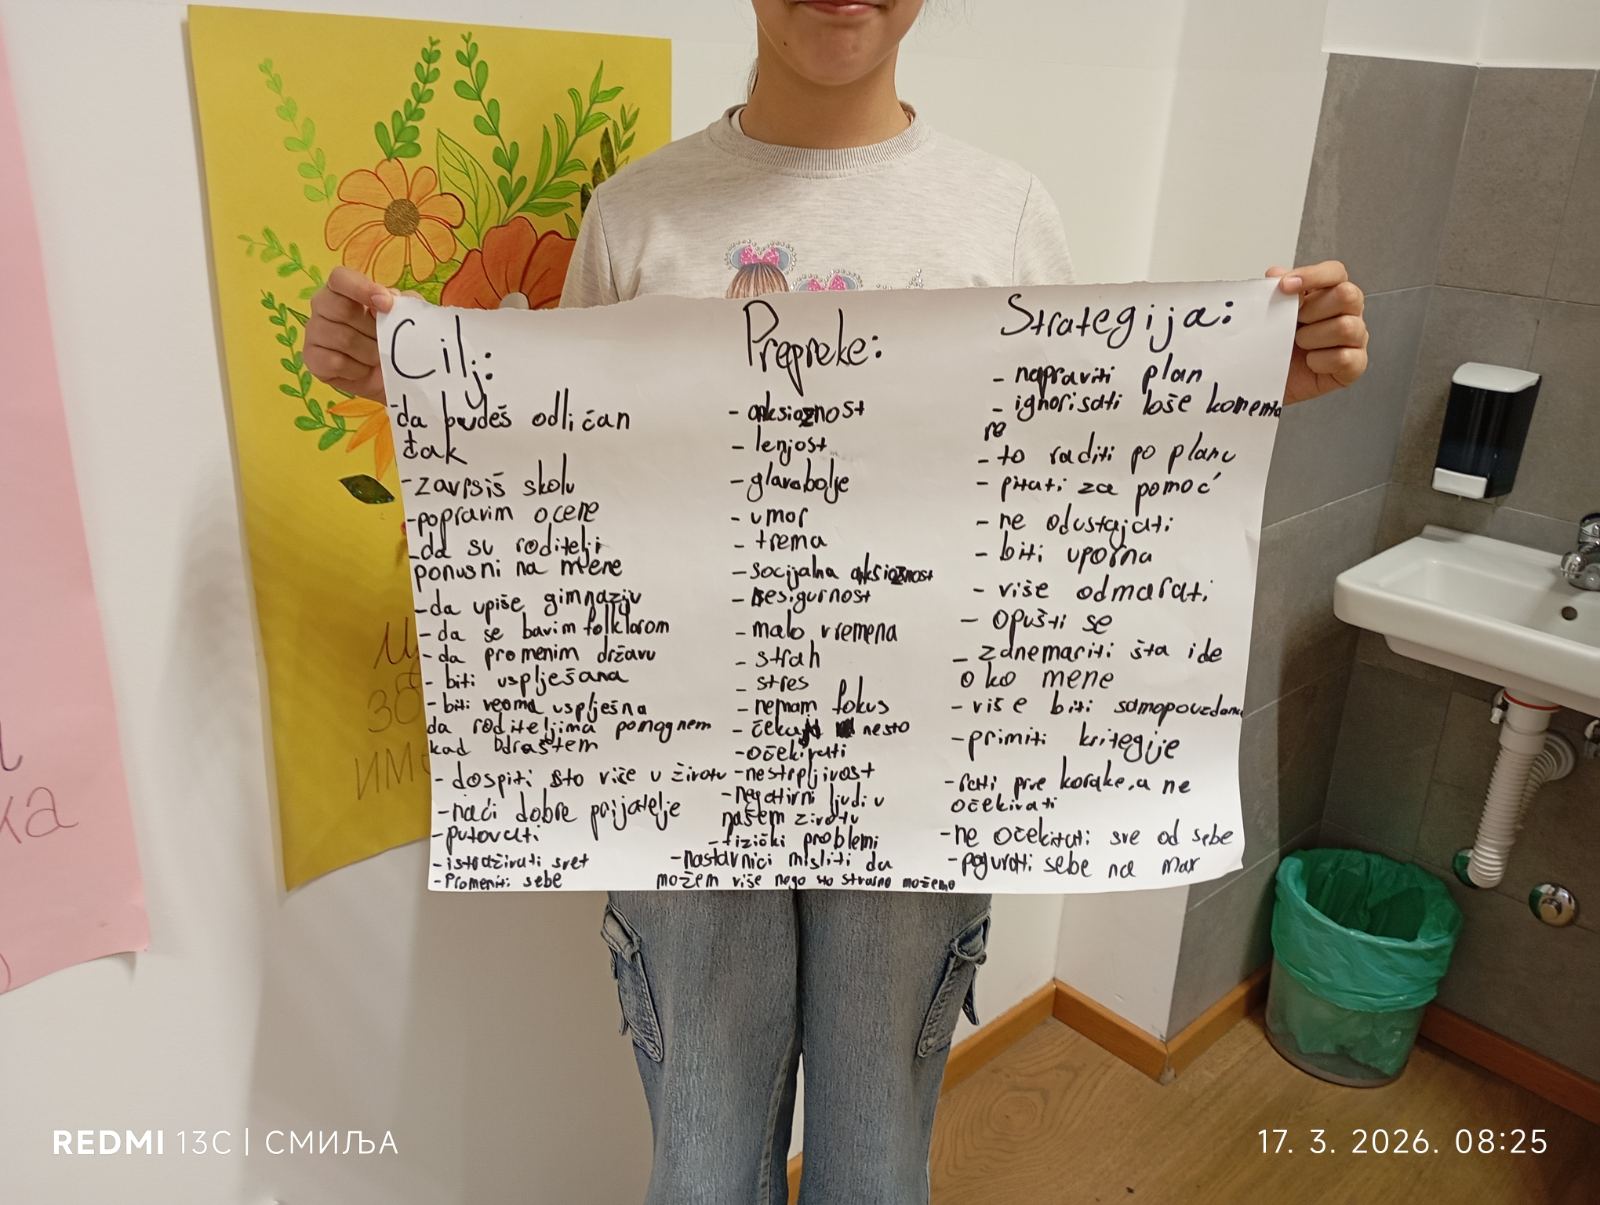 Cilj:
-da budeš odličan
đak
-zavrsiš skolu
-popravim ocene
-da su roditelji
ponusni na mene
-da upiše gimnaziju
-da se bavim folklorom
-da promenim državu
- biti usplješana
- biti veoma usplješna
da roditeljima pomognem
kad odraštem
- dospiti što više u životu
-naći dobre prijatelje
-putovati
-istraživati svet
-Promeniti sebe
Prepreke:
- anksioznost
- lenjost
-glavobolje
- umor
- trema
-socijalna anksioznost
-nesigurnost
- malo vremena
- strah
- stres
- nemam fokus
- čekajt nesto
-očekivati
-nestrpljivost
-negativni ljudi u
našem zivotu
-fizički problemi
-nastavnici misliti da
možem više nego što stvarno možemo
Strategija:
- napraviti plan
- ignorisati loše komenta
re
- to raditi po planu
- pitati za pomoć
- ne odustajati
- biti uporna
- više odmarati
- opušti se
- zanemariti šta ide
oko mene
- više biti samopouzdana
-primiti kritegije
prve korake, a ne
očekivati
-ne očekivati sve od sebe
-pogurati sebe na max
ИМ
ка
REDMI 13C | СМИЉА
17. 3. 2026. 08:25